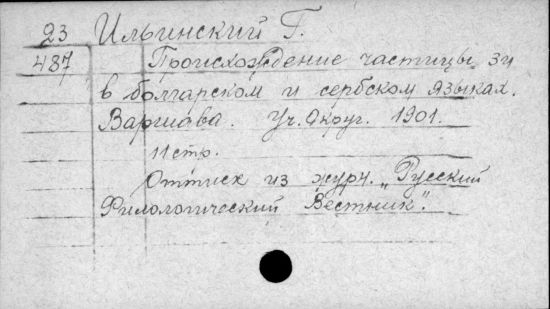 23 Ильинский Г.
487 Происхождение частицы зи
в болгарском и сербском языках.
Варшава. Уч. Округ. 1901.
11 стр.
Оттиск из журн. „Русский
Филологический Вестник".